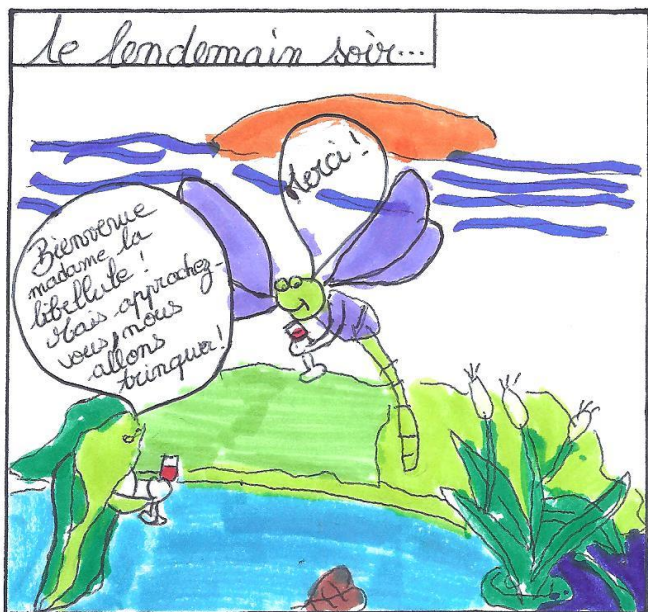 le lendemain soir...
Merci!
Bienvenue
madame la
libellule!
Mais approchez-
vous, nous
allons
trinquer!